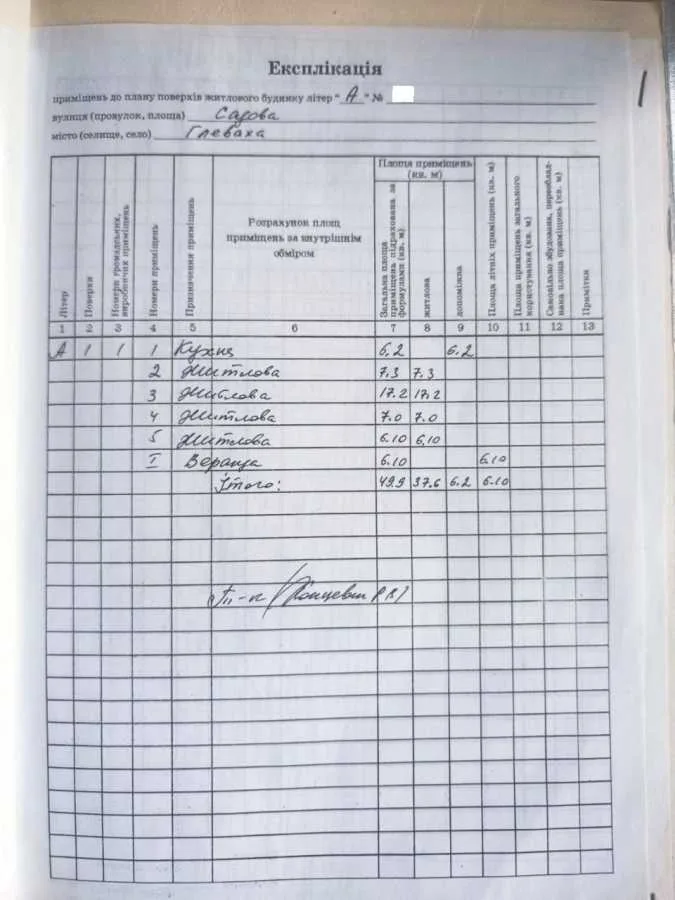 Експлікація
приміщень до плану поверхів житлового будинку літер " А " №
вулиця (провулок, площа) Садова
місто (селище, село) Глеваха
1
Літер
Поверхи
Номери громадських, виробничих приміщень
Номери приміщень
Призначення приміщень
Розрахунок площ
приміщень за внутрішнім
обміром
Площа приміщень
(кв. м)
Загальна площа приміщень підрахована за формулами (кв. м)
житлова
допоміжна
Площа літніх приміщень (кв. м)
Площа приміщень загального користування (кв. м)
Самовільно збудована, переобладнана площа приміщень (кв. м)
Примітки
1 2 3 4 5 6 7 8 9 10 11 12 13
А 1 1 1 Кухня 6.2 6.2
2 Житлова 7.3 7.3
3 Житлова 17.2 17.2
4 Житлова 7.0 7.0
5 Житлова 6.10 6.10
I Веранда 6.10 6.10
Ітого: 49.9 37.6 6.2 6.10